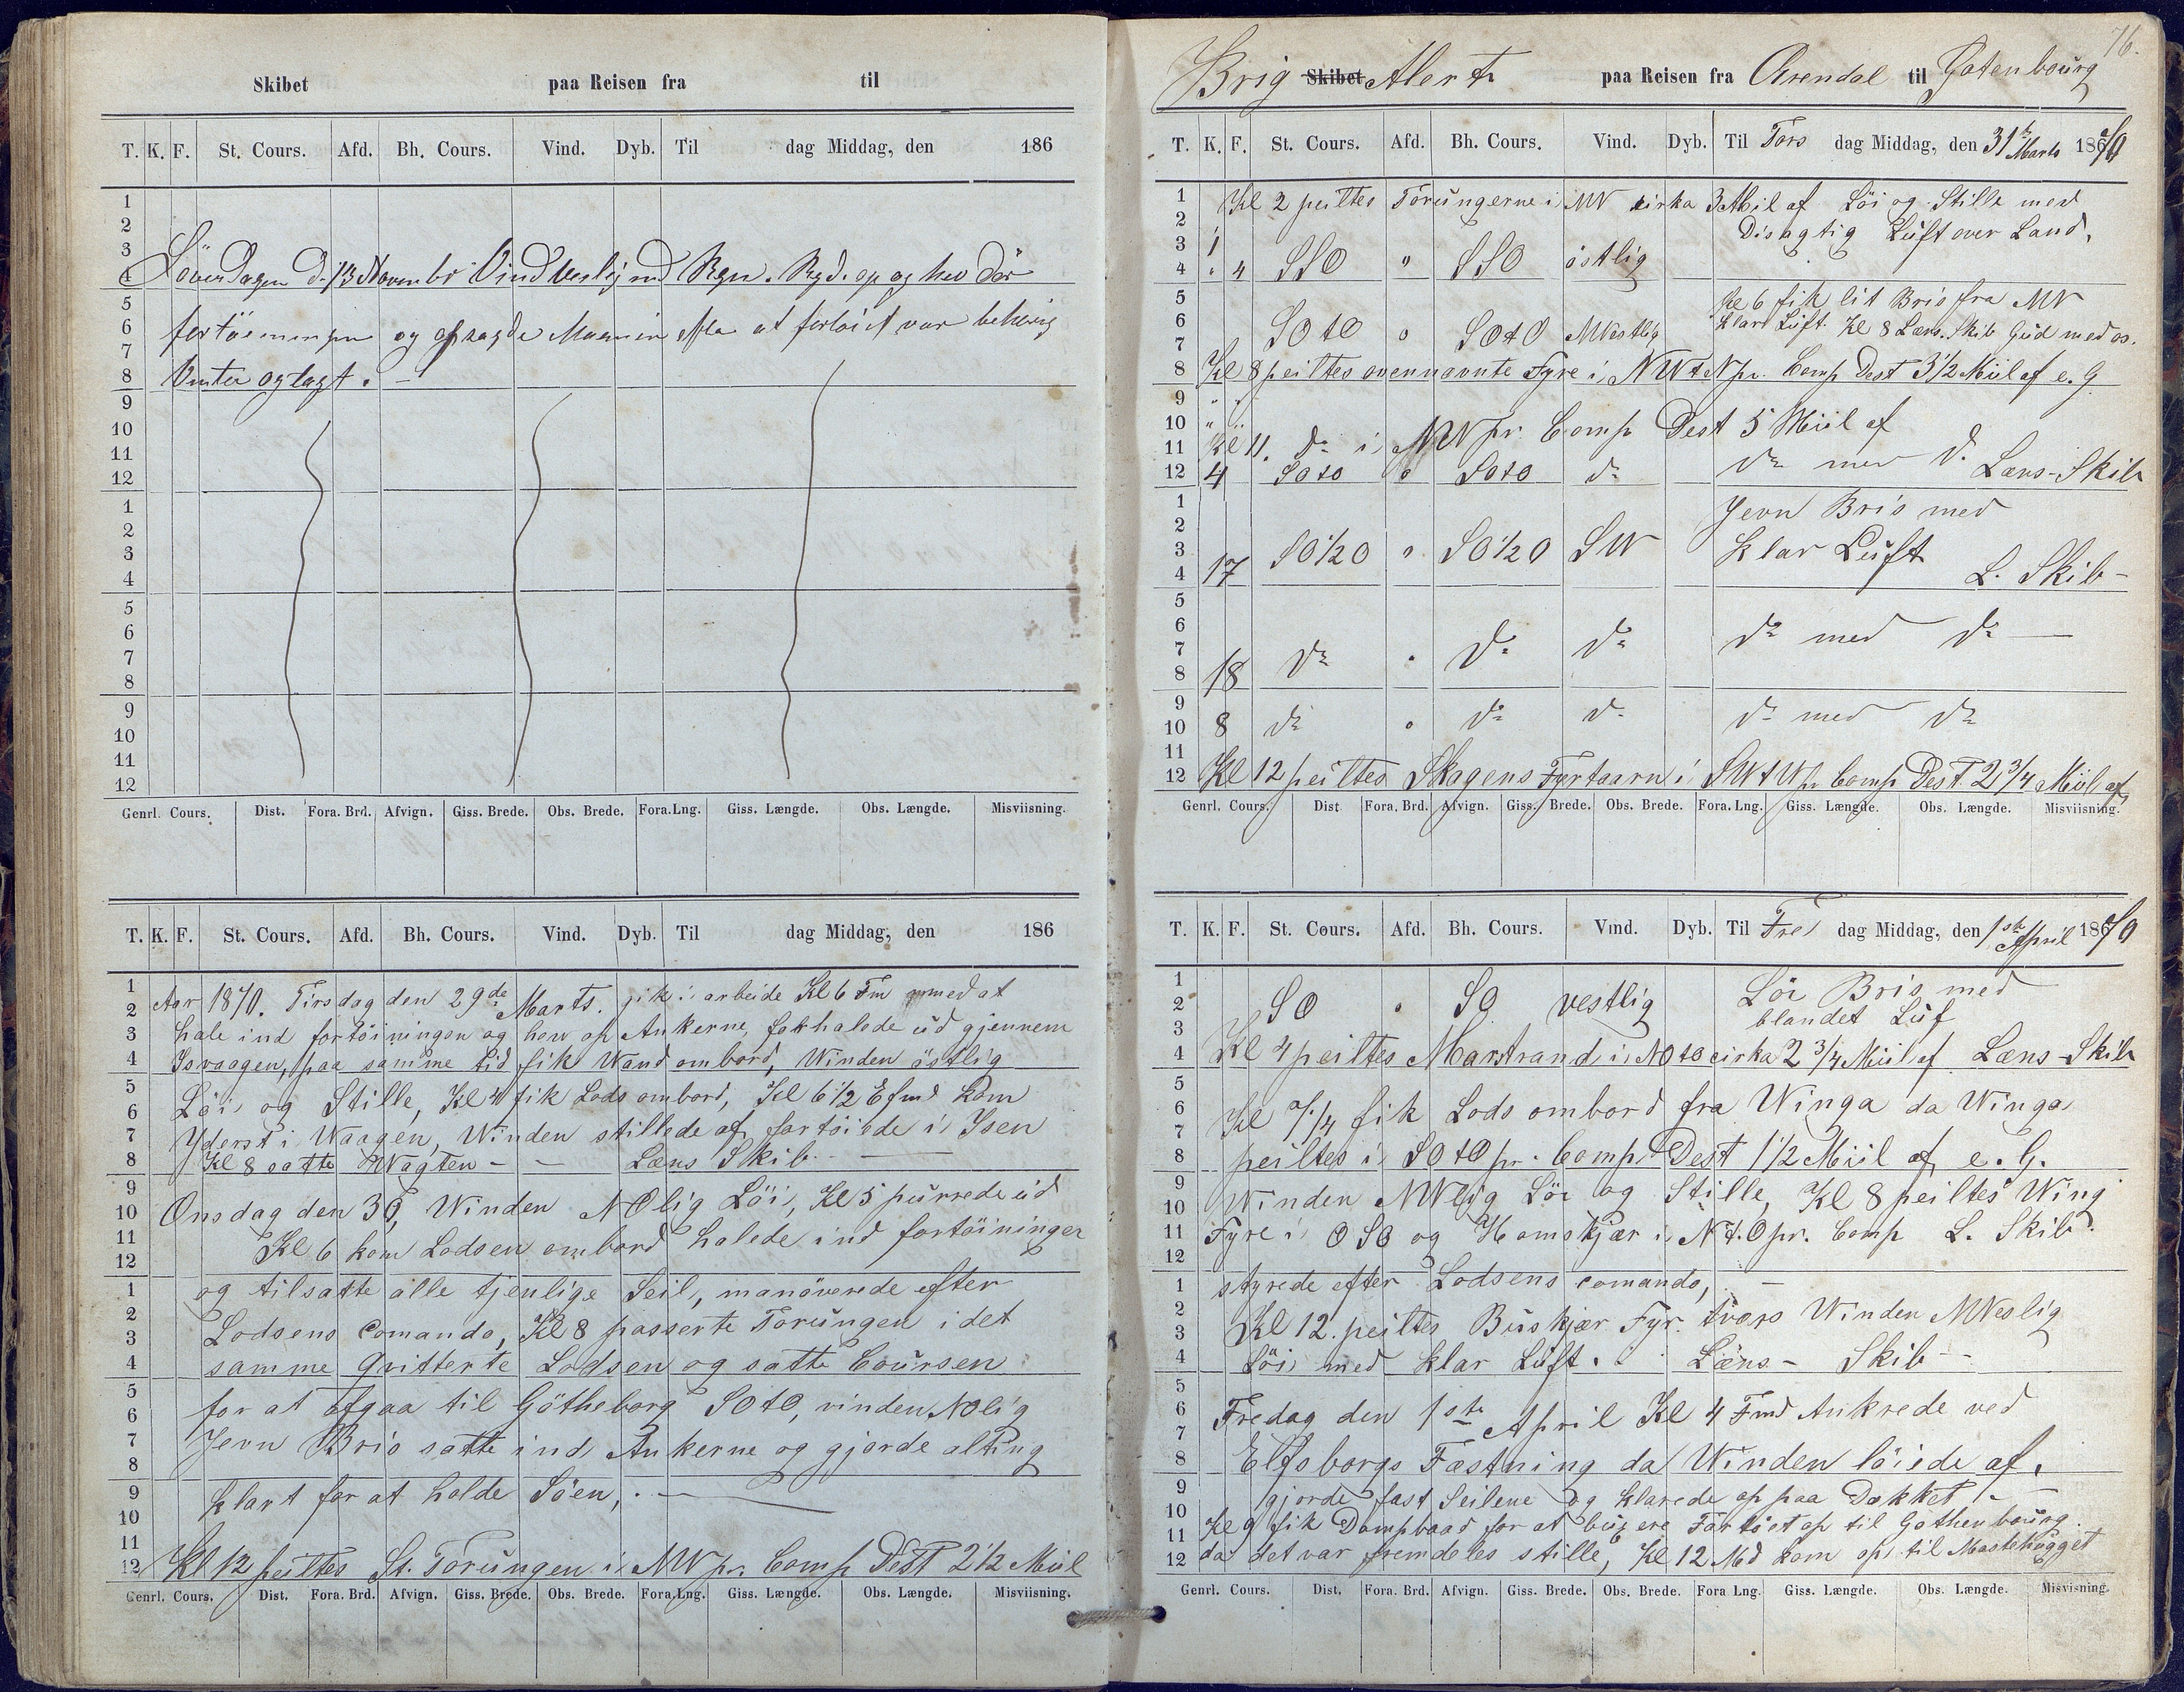 Skibet paa Reisen fra til
T. K. F. St. Cours. Afd. Bh. Cours. Vind. Dyb. Til dag Middag, den 186
1
2
3
4
Löverdagen d. 13 Novembr Vind Vestlig md Regn.
5
6
fortöiningen og
7
8
Vinter oglagt. —
9
10
11
12
1
2
3
4
5
6
7
8
9
10
11
12
Genrl. Cours. Dist. Fora. Brd. Afvign. Giss. Brede. Obs. Brede. Fora.Lng. Giss. Længde. Obs. Længde. Misviisning.
T. K. F. St. Cours. Afd. Bh. Cours. Vind. Dyb. Til dag Middag, den 186
1
2
3
4
5
6
7
8
9
10
11
12
1
2
3
4
5
6
7
8
9
10
11
12
Aar 1870. Tirsdag den 29de Marts. gik i arbeide Kl 6 Fm med at
hale ind fortöiningen og hev op Ankerne, forhalede ud gjennem
Isvaagen, paa samme tid fik Wand ombord, Winden östlig
Löi og Stille, Kl 4 fik Lods ombord, Kl 6 1/2 Efmd kom
Yderst i Waagen, Winden stillede af, fortöiede i Isen
Kl 8 satte Wagten - — Læns Skib - —
Onsdag den 30, Winden NOlig Löi, Kl 5 purrede ud
Kl 6 kom Lodsen ombord halede ind fortöininger
og tilsatte alle tjenlige Seil, manöverede efter
Lodsens Comando, Kl 8 passerte Torungen i det
samme qvitterte Lodsen og satte Coursen
for at afgaa til Götheborg SOtO, vinden NOlig
Jevn Bris satte ind Ankerne og gjorde alting
klart for at holde Söen, . —
Kl 12 peiltes St. Torungen i NW pr. Comp Dest 2 1/2 Miil
Genrl. Cours. Dist. Fora. Brd. Afvign. Giss. Brede. Obs. Brede. Fora.Lng. Giss. Længde. Obs. Længde. Misviisning.
76.
Brig Skibet Alert paa Reisen fra Arendal til Gotenbourg
T. K. F. St. Cours. Afd. Bh. Cours. Vind. Dyb. Til Tors dag Middag, den 31te Marts 1870
1
2
3
4
5
6
7
8
9
10
11
12
1
2
3
4
5
6
7
8
9
10
11
12
Kl 2 peiltes Torungerne i NW cirka 3 Miil af Löi og Stille med
Disagtig Luft over Land.
1
" 4 SSO " SSO östlig
Kl 6 fik lit Bris fra NW
SOtO o SOtO NVestlig klar Luft. Kl 8 Læns. Skib Gud med os.
Kl 8 peiltes ovennævnte Fyre i NWtN pr. Comp Dest 3 1/2 Miil af e. G
Kl 11. do i NW pr. Comp Dest 5 Miil af
4 SOtO o SOtO do do med do. Læns-Skib
Jevn Bris med
17 SO1/2O o SO1/2O SW klar Luft L. Skib -
18 do . do do do med do —
8 do o do do do med do
Kl 12 peiltes Skagens Fyrtaarn i SWtW pr Comp Dest. 2 3/4 Miil af
Genrl. Cours. Dist Fora. Brd. Afvign. Giss. Brede. Obs. Brede. Fora. Lng. Giss. Længde. Obs. Længde. Misviisning.
T. K. F. St. Cours. Afd. Bh. Cours. Vind. Dyb. Til Fre dag Middag, den 1ste April 1870
1
2
3
4
5
6
7
8
9
10
11
12
1
2
3
4
5
6
7
8
9
10
11
12
SO . SO vestlig Löi Bris med
blandet Luf
Kl 4 peiltes Marstrand i NOtO cirka 2 3/4 Miil af Læns-Skib
fik Lods ombord fra Winga da Winga
peiltes i SOtO pr. Comp Dest 1 1/2 Miil af e. G.
Winden NWlig Löi og Stille, Kl 8 peiltes Wing
Fyre i OSO og Hamskjær i NtO pr. Comp L. Skib.
styrede efter Lodsens comando, —
Kl 12. peiltes Buskjær Fyr. tvars Winden NVeslig
Löi med klar Luft. Læns - Skib -
Fredag den 1ste April Kl 4 Fmd Ankrede ved
Elfsborgs Fæstning da Winden löiede af.
gjorde fast Seilene og klarede op paa Dækket - —
Kl 9 fik Dampbaad for at bugsere Fartöiet op til Gothenbourg.
da det var fremdeles stille, Kl 12 Md kom op til Mastehugget
Genrl. Cours. Dist. Fora. Brd. Afvign. Giss. Brede. Obs. Brede. Fora Lng. Giss. Længde. Obs. Længde. Misvisning.